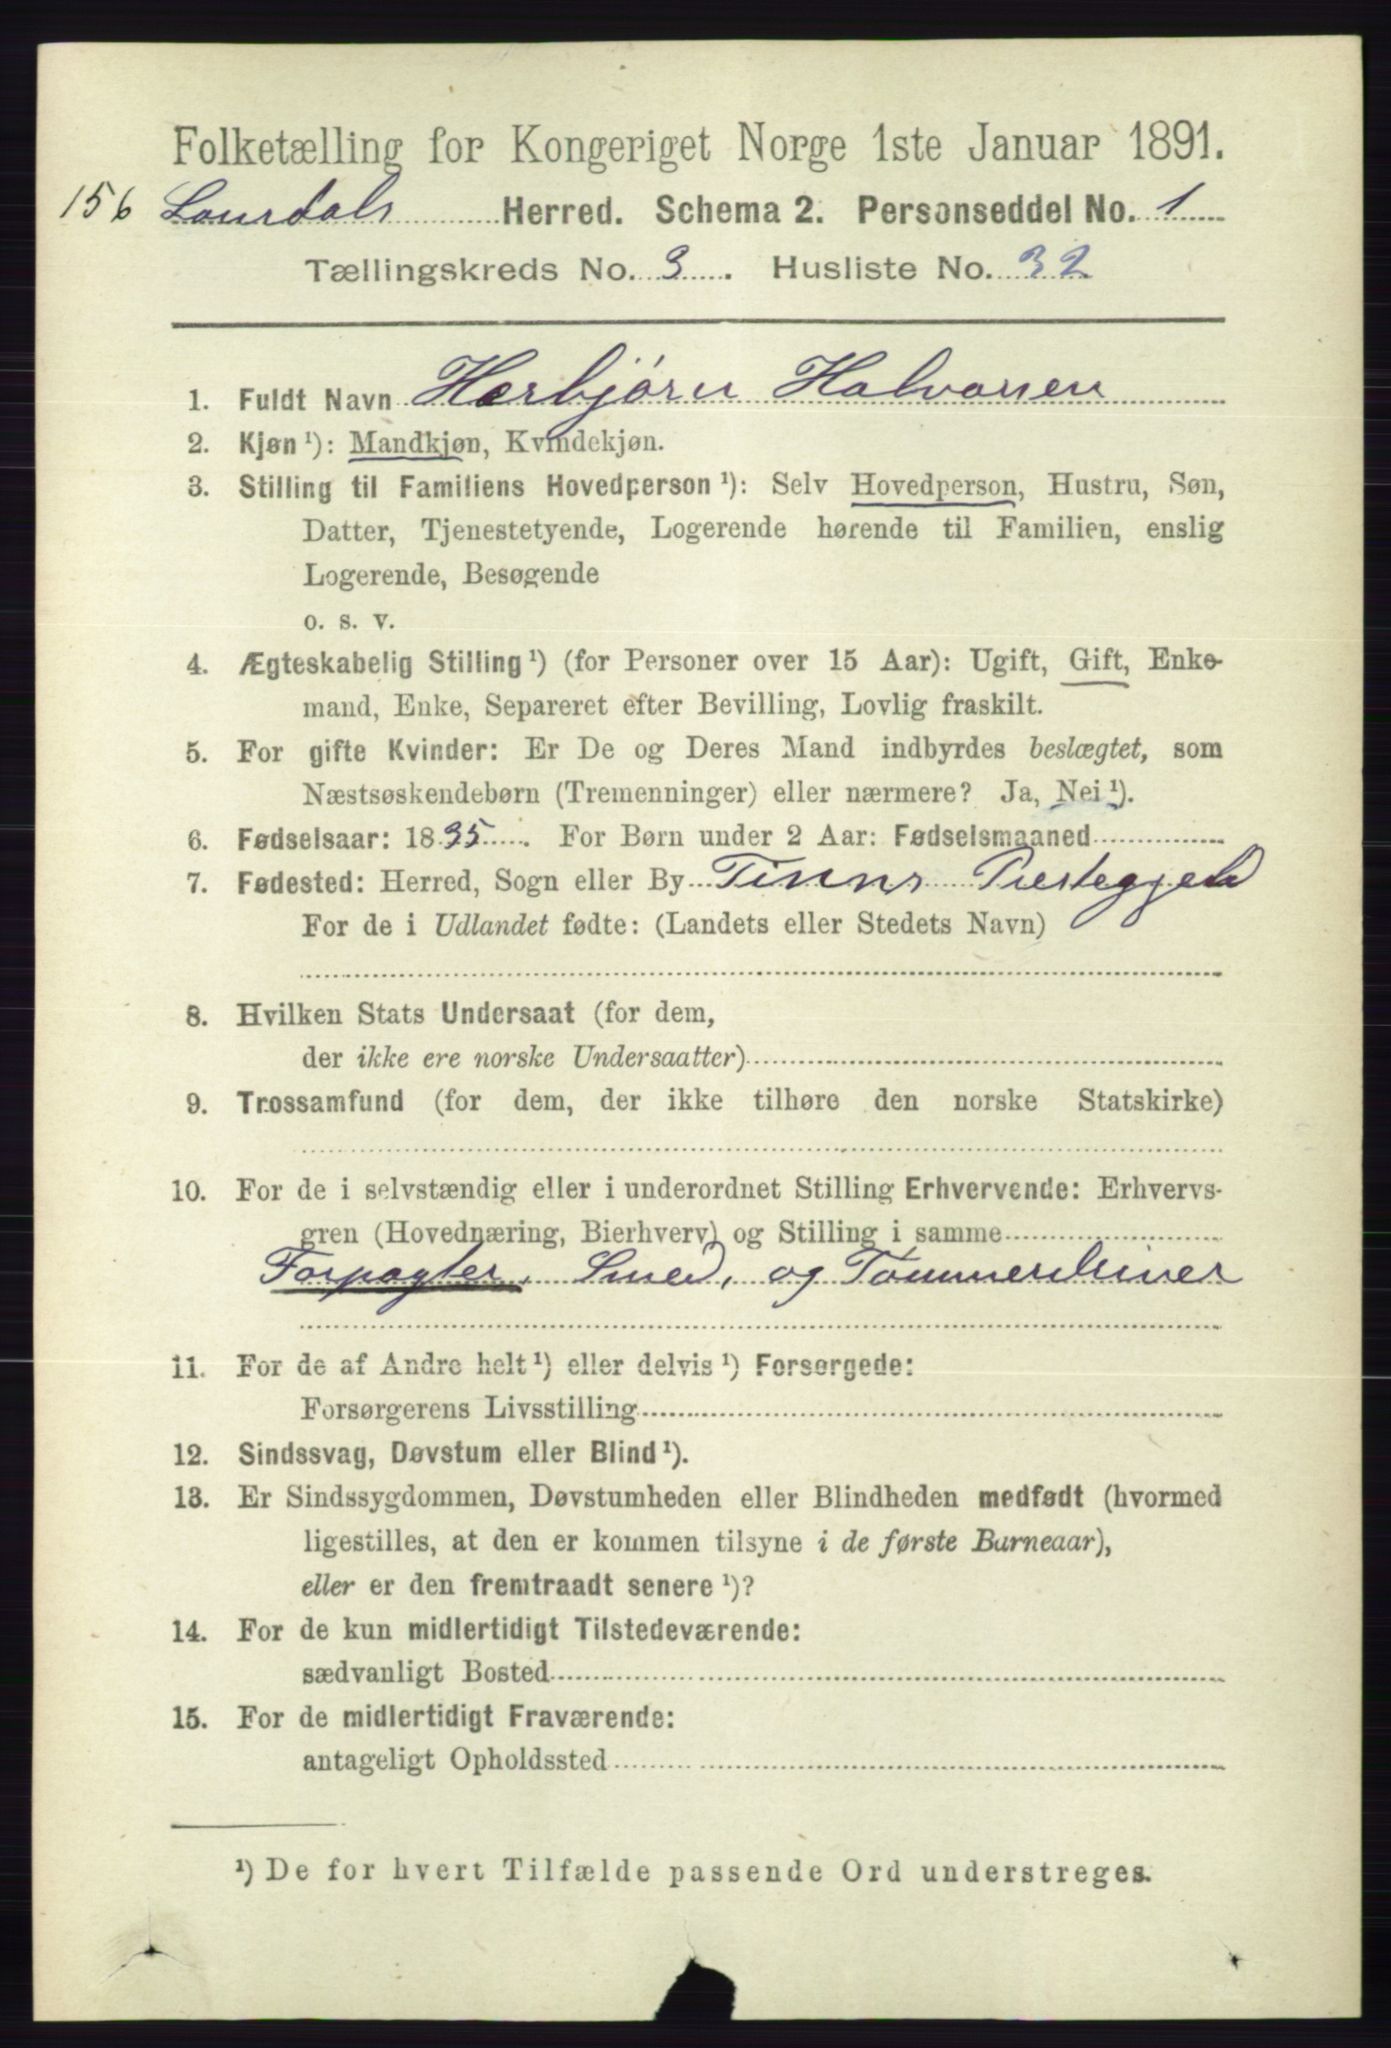 Folketælling for Kongeriget Norge 1ste Januar 1891.
156 Laurdals Herred. Schema 2. Personseddel No. 1
Tællingskreds No. 3. Husliste No. 32
1. Fuldt Navn Herbjørn Halvorsen
2. Kjøn ¹): Mandkjøn, Kvindekjøn.
3. Stilling til Familiens Hovedperson ¹): Selv Hovedperson, Hustru, Søn,
Datter, Tjenestetyende, Logerende hørende til Familien, enslig
Logerende, Besøgende
o. s. v.
4. Ægteskabelig Stilling ¹) (for Personer over 15 Aar): Ugift, Gift, Enke-
mand, Enke, Separeret efter Bevilling, Lovlig fraskilt.
5. For gifte Kvinder: Er De og Deres Mand indbyrdes beslægtet, som
Næstsøskendebørn (Tremenninger) eller nærmere? Ja, Nei ¹).
6. Fødselsaar: 1835. For Børn under 2 Aar: Fødselsmaaned
7. Fødested: Herred, Sogn eller By Tinns Prestegjeld
For de i Udlandet fødte: (Landets eller Stedets Navn)
8. Hvilken Stats Undersaat (for dem,
der ikke ere norske Undersaatter)
9. Trossamfund (for dem, der ikke tilhøre den norske Statskirke)
10. For de i selvstændig eller i underordnet Stilling Erhvervende: Erhvervs-
gren (Hovednæring, Bierhverv) og Stilling i samme
Forpagter, Smed, og Tømmerdriver
11. For de af Andre helt ¹) eller delvis ¹) Forsørgede:
Forsørgerens Livsstilling
12. Sindssvag, Døvstum eller Blind ¹).
13. Er Sindssygdommen, Døvstumheden eller Blindheden medfødt (hvormed
ligestilles, at den er kommen tilsyne i de første Barneaar),
eller er den fremtraadt senere ¹)?
14. For de kun midlertidigt Tilstedeværende:
sædvanligt Bosted
15. For de midlertidigt Fraværende:
antageligt Opholdssted
¹) De for hvert Tilfælde passende Ord understreges.